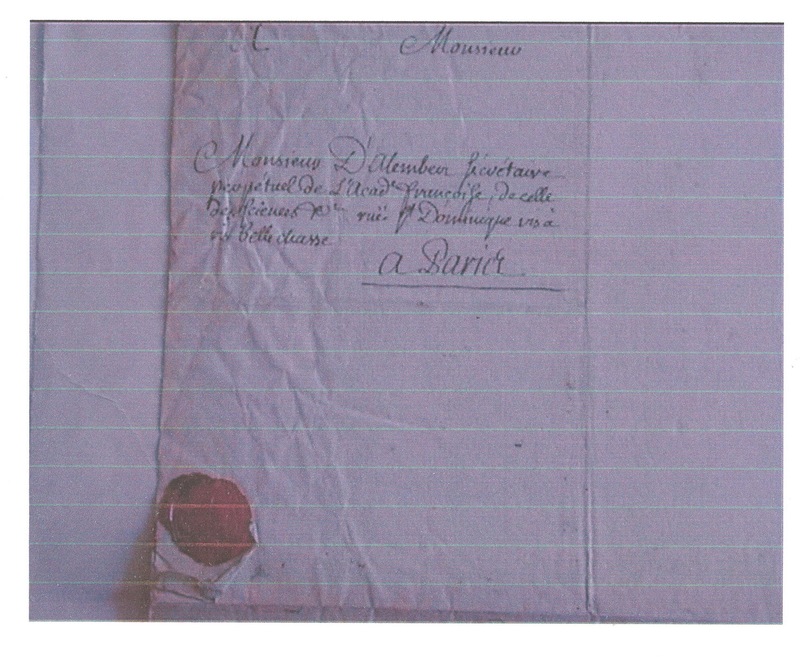 Monsieur
Monsieur D'Alembert Sécrétaire
perpétuel de L'Acad^e françoise, de celle
des sciences &^c rue S^t Dominique vis à
vis Belle chasse
A Paris